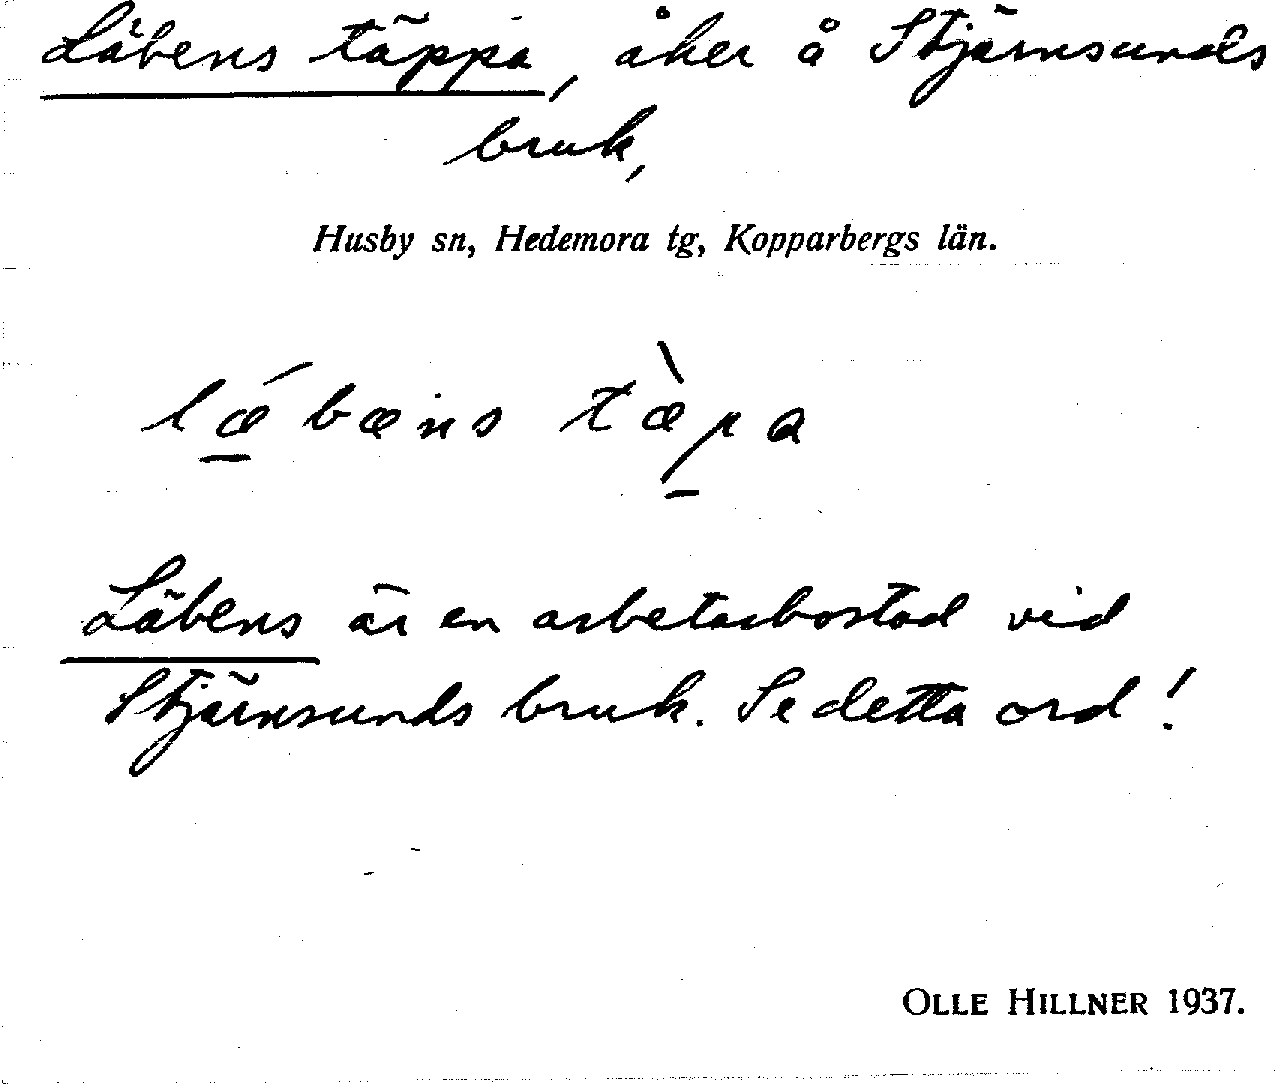 Läbens täppa, åker å Stjärnsunds
bruk,
Husby sn, Hedemora tg, Kopparbergs län.
lǽ̠bæns tæ̀p̠a
Läbens är en arbetarbostad vid
Stjärnsunds bruk. Se detta ord!
OLLE HILLNER 1937.